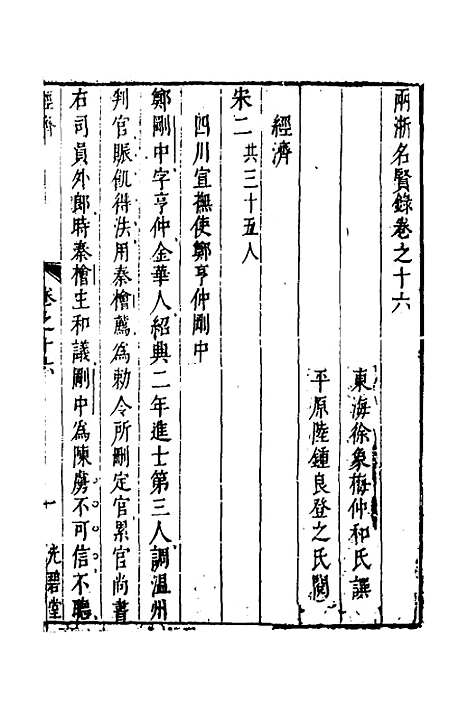 兩浙名賢錄卷之十六
東海徐象梅仲和氏譔
平原陸鍾良登之氏閱
經濟
宋二共三十五人
四川宣撫使鄭亨仲剛中
鄭剛中字亨仲金華人紹興二年進士第三人調溫州
判官賑飢得法用秦檜薦為勅令所刪定官累官尚書
右司員外郎時秦檜主和議剛中為陳虜不可信不聽
經濟
卷之十六
光碧堂